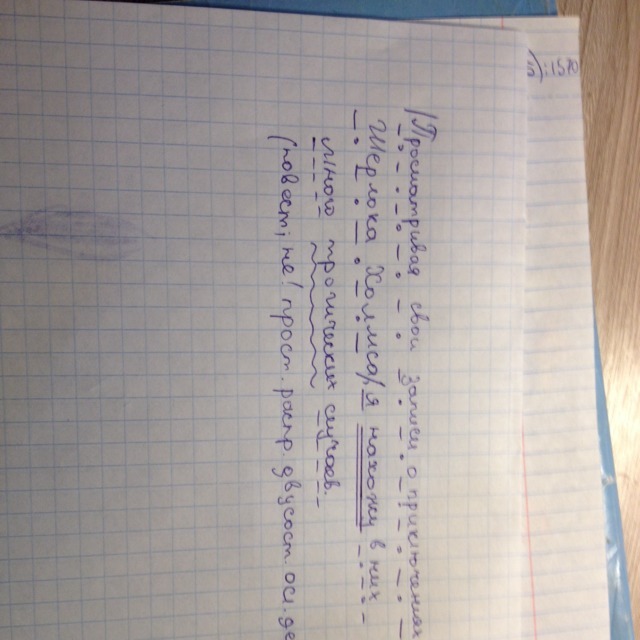 /Просматривая свои записи о приключениях
Шерлока Холмса/, я нахожу в них
много трагических случаев.
(повест., не!, прост., распр., двусост., осл. де